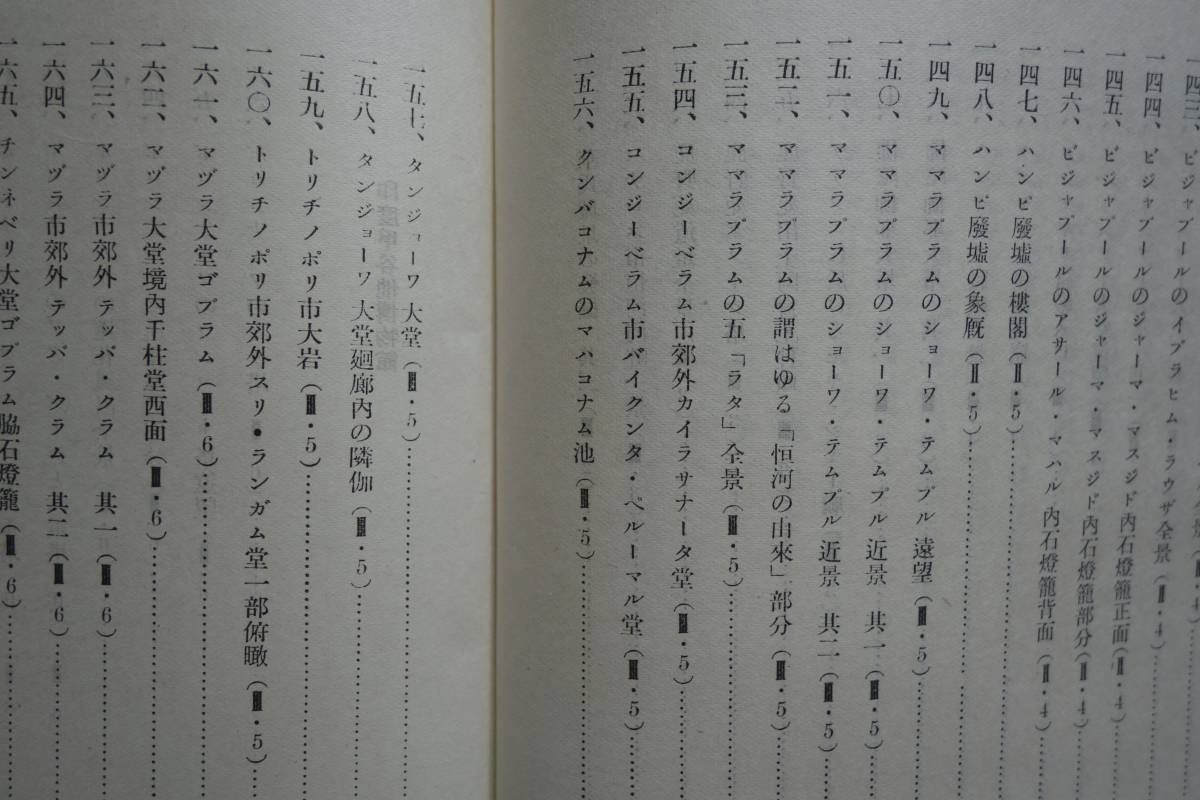 一四三、ビジャプールのイブラヒム・ラウザ全景（Ⅱ・4）
一四四、ビジャプールのジャーマ・マスジド內石燈籠正面（Ⅱ・4）
一四五、ビジャプールのジャーマ・マスジド內石燈籠部分（Ⅱ・4）
一四六、ビジャプールのアサール・マハル內石燈籠背面（Ⅱ・4）
一四七、ハンピ廢墟の樓閣（Ⅱ・5）
一四八、ハンピ廢墟の象厩（Ⅱ・5）
一四九、ママラプラムのショーワ・テムプル遠望（Ⅲ・5）
一五〇、ママラプラムのショーワ・テムプル近景 其一（Ⅲ・5）
一五一、ママラプラムのショーワ・テムプル近景 其二（Ⅲ・5）
一五二、ママラプラムの謂はゆる「恒河の由來」部分（Ⅱ・5）
一五三、ママラプラムの五「ラタ」全景（Ⅲ・5）
一五四、コンジーベラム市郊外カイラサナータ堂（Ⅲ・5）
一五五、コンジーベラム市バイクンタ・ペルーマル堂（Ⅲ・5）
一五六、クンバコナムのマハコナム池（Ⅲ・5）
一五七、タンジョーワ大堂（Ⅲ・5）
一五八、タンジョーワ大堂廻廊內の隣伽（Ⅲ・5）
一五九、トリチノポリ市大岩（Ⅲ・5）
一六〇、トリチノポリ市郊外スリ・ランガム堂一部俯瞰（Ⅲ・5）
一六一、マヅラ大堂ゴプラム（Ⅲ・6）
一六二、マヅラ大堂境內千柱堂西面（Ⅲ・6）
一六三、マヅラ市郊外テッパ・クラム 其一（Ⅲ・6）
一六四、マヅラ市郊外テッパ・クラム 其二（Ⅲ・6）
一六五、チンネベリ大堂ゴプラム脇石燈籠（Ⅲ・6）